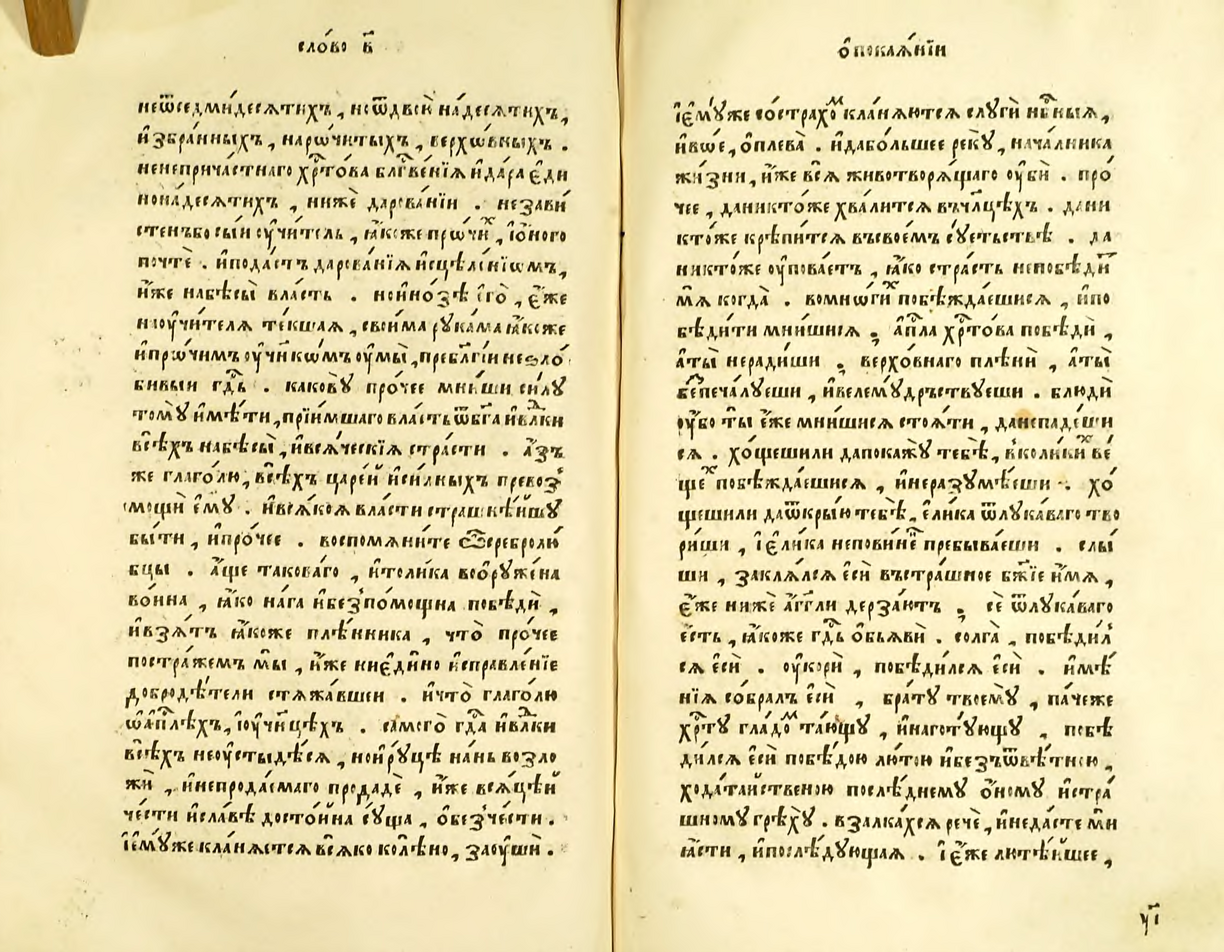 сло́во в҃
неѿседми́десѧтихъ , неѿдвѹ̀ на́десѧтихъ ,
и҆збра́нныхъ , наро́чнтыхъ , верхо́вныхъ .
ненепрнча́стнаго хрⷭ҇то́ва блгⷭ҇ве́нїѧ и҆да́ра є҆ди
нона́десѧтихъ , нижѐ дарова́нїи . неза́ви
стенъбо сы́и ѹ҆чи́тель , ꙗ҆́коже про́чиⷯ , і҆о́ного
почтѐ . и҆пода́стъ дарова́нїѧ и҆сцѣле́нїѡмъ ,
и҆́же набѣ́сы вла́сть . нои҆но́зѣ є҆го̀ , є҆́же
наѹ҆чи́телѧ те́кшаѧ , свои́ма рѹка́ма ꙗ҆́коже
и҆про́чимъ ѹ҆чн҃кѡ́мъ ѹ҆мы̀ , пребл҃гі́и неѕло́
бивыи гдⷭ҇ь . како́вꙋ про́чее мни́ши си́лꙋ
то́мꙋ и҆мѣ́ти , прїи́мшаго вла́сть ѿбг҃а и҆влⷣки
всѣ́хъ набѣ́сы , и҆всѧ́ческїѧ стра́сти . а҆́зъ
же глаго́лю , всѣ́хъ царе́й и҆си́лныхъ превоз
мощѝ є҆мꙋ̀ . и҆всѧ́коѧ вла́сти страшнѣ́йшꙋ
бы́ти , и҆про́чее . воспомѧни́те ѽсеребролю́
бцы . а҆́ще такова́го , и҆толи́ка воо҆рꙋже́на
во́ина , ꙗ҆́ко на́га и҆безпо́мощна побѣдѝ ,
и҆взѧ́тъ ꙗ҆́коже плѣ́нника , что̀ про́чее
постра́жемъ мы̀ , и҆́же ниє҆ди́но и҆справле́нїе
добродѣ́тели стѧжа́вшеи . и҆что̀ глаго́лю
ѡ҆а҆пⷭ҇лѣхъ , і҆ѹ҆чн҃цѣхъ . самого̀ гдⷭ҇а и҆влⷣки
всѣ́хъ неѹ҆стыдѣ́сѧ , нои҆рꙋ́цѣ на́нь возло
жѝ , и҆непрода́емаго продадѐ , и҆́же всѧ́цѣй
че́сти и҆сла́вѣ досто́йна сꙋ́ща , о҆безче́сти .
і҆є҆мꙋ́же кла́нѧетсѧ всѧ́ко колѣ́но , заѹ҆шѝ .
ѻ҆покаѧ́нїи
і҆є҆мꙋ́же состра́хоⷨ кла́нѧютсѧ слѹгѝ нбⷭ҇ныѧ ,
и҆все , ѻ҆плева̀ . и҆дабо́льшее рекꙋ̀ , нача́лника
жи́зни , и҆́же всѧ̀ животворѧ́щаго ѹ҆бѝ . про́
чее , даникто́же хва́литсѧ въчл҃цѣхъ . дани
кто́же крѣ́питсѧ въсвое́мъ сꙋ́етьствѣ . да
никто́же ѹ҆пова́етъ , ꙗ҆́ко стра́сть непобѣди́
мѧ когда̀ . вомно́гиⷯ побѣжда́ешисѧ , и҆по
бѣди́ти мни́шисѧ ; а҆пⷭ҇ла хрⷭ҇то́ва побѣдѝ ,
а҆ты̀ неради́ши ; верхо́внаго плѣнѝ , а҆ты̀
беспеча́лꙋеши , и҆велемꙋ́дръствꙋеши . блюдѝ
ѹ҆́бо ты̀ є҆́же мни́шисѧ стоѧ́ти , данепаде́ши
сѧ . хо́щешили дапокажꙋ̀ тебѣ̀ , вколи́киⷯ ве́
щеⷯ побѣжда́ешисѧ , и҆неразꙋмѣ́еши . хо́
щешили даѿкры́ю тебѣ̀ , є҆ли́ка ѿлꙋка́ваго тво
ри́ши , і҆є҆ли́ка непови́нне пребыва́еши . слы́
ши , заклѧ́лсѧ є҆сѝ въстра́шное бж҃їе и҆́мѧ ,
є҆́же нижѐ а҆́гг҃ли дерза́ютъ ; сѐ ѿлꙋка́ваго
є҆́сть , ꙗ҆́коже гдⷭ҇ь ѻ҆бъѧвѝ . солга̀ , побѣди́л
сѧ є҆сѝ . ѹ҆корѝ , побѣди́лсѧ є҆сѝ . и҆мѣ́
нїѧ собра́лъ є҆сѝ , бра́тꙋ твоемꙋ̀ , па́чеже
хрⷭ҇тꙋ̀ гла́доⷨ та́ющꙋ , и҆наготꙋ́ющꙋ , побѣ
ди́лсѧ є҆сѝ побѣ́дою лю́тою и҆безъѿвѣ́тною ,
хода́тайственою послѣ́днемꙋ ѻ҆́номꙋ и҆стра́
шномꙋ грѣхꙋ̀ . взалка́хсѧ речѐ , и҆неда́сте мѝ
ꙗ҆́сти , и҆послѣ́дꙋющаѧ . і҆є҆́же лютѣ́йшее ,
у҃і